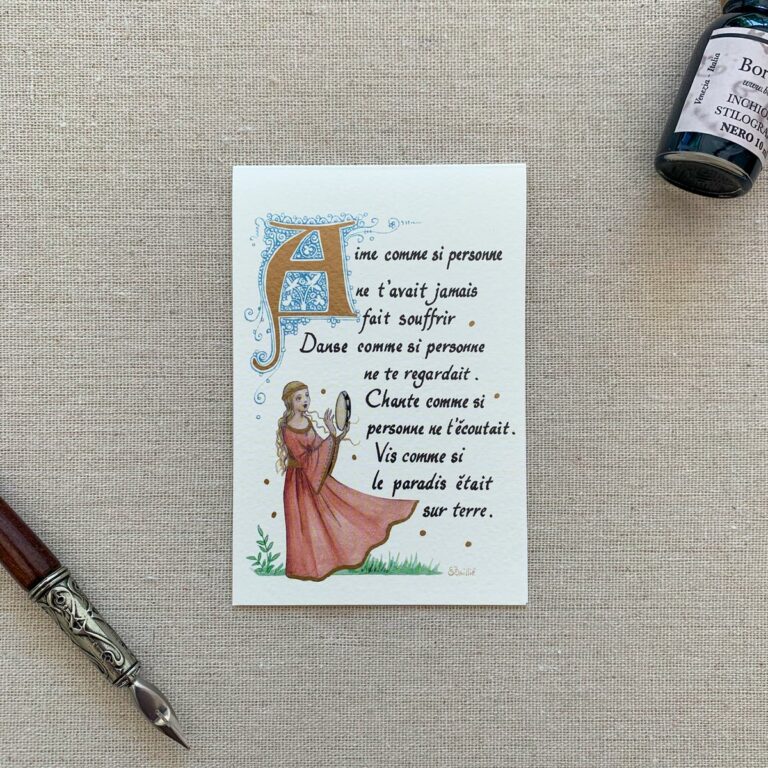 Aime comme si personne
ne t'avait jamais
fait souffrir
Danse comme si personne
ne te regardait.
Chante comme si
personne ne t'écoutait.
Vis comme si
le paradis était
sur terre.
Venezia - Italia
INCHIO
STILOGRA
NERO 10